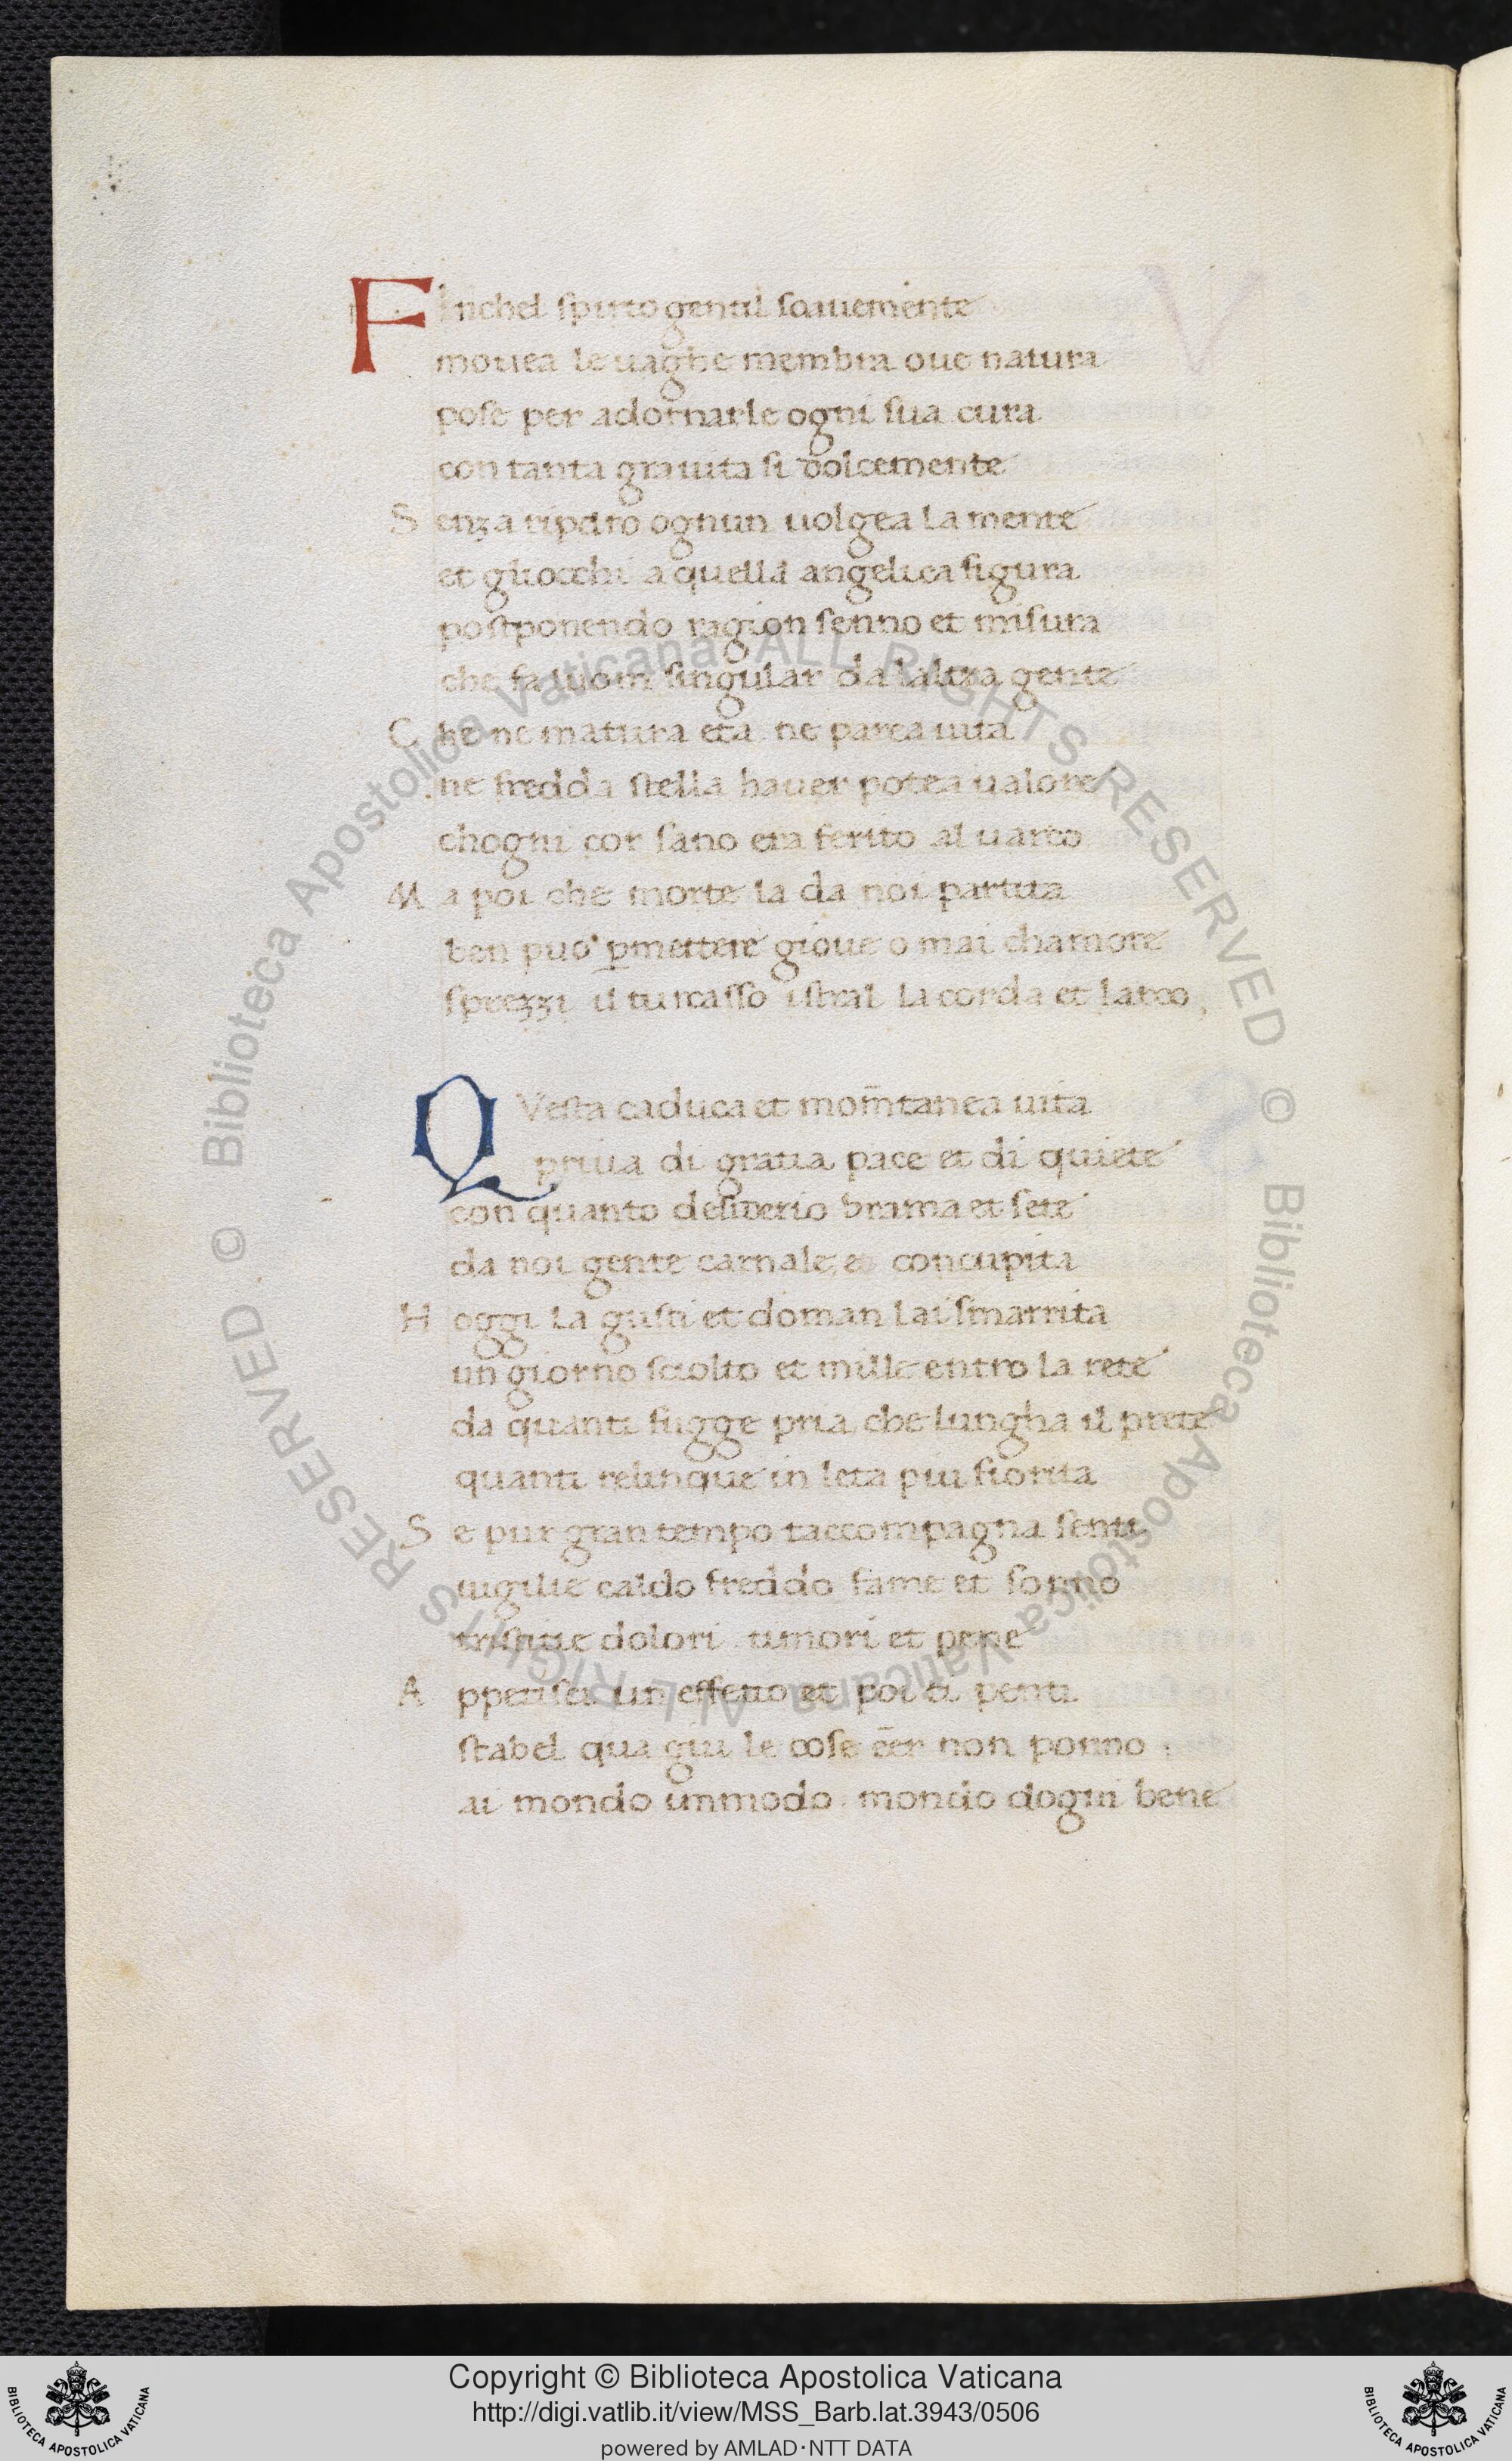 Finchel spirto gentil soauemente
mouea le uaghe membra oue natura
pose per adornarle ogni sua cura
con tanta grauita si dolcemente
Senza ripetto ognun uolgea la mente
et gliocchi a quella angelica figura
postponendo ragion senno et misura
che fa luom singular da laltra gente
Che ne matura eta ne parca uita
ne fredda stella hauer potea ualore
chogni cor sano era ferito al uarco
Ma poi che morte la da noi partita
ben puo p̱mettere gioue o mai chamore
sprezzi il turcasso istral la corda et larco
QVesta caduca et mom̄tanea uita
priua di gratia pace et di quiete
con quanto desiderio brama et sete
da noi gente carnale e concupita
Hoggi la gusti et doman lai smarrita
un giorno sciolto et mille entro la rete
da quanti fugge pria che lungha il prete
quanti relinque in leta piu fiorita
Se pur gran tempo taccompagna senti
uigilie caldo freddo fame et sonno
tristitie dolori timori et pene
Appetisci un effetto et poi ti penti
stabel qua giu le cose eēr non ponno
ai mondo immodo mondo dogni bene
© Biblioteca Apostolica Vaticana ALL RIGHTS RESERVED
© Biblioteca Apostolica Vaticana ALL RIGHTS RESERVED
Copyright © Biblioteca Apostolica Vaticana
http://digi.vatlib.it/view/MSS_Barb.lat.3943/0506
powered by AMLAD·NTT DATA
BIBLIOTECA APOSTOLICA VATICANA
BIBLIOTECA APOSTOLICA VATICANA